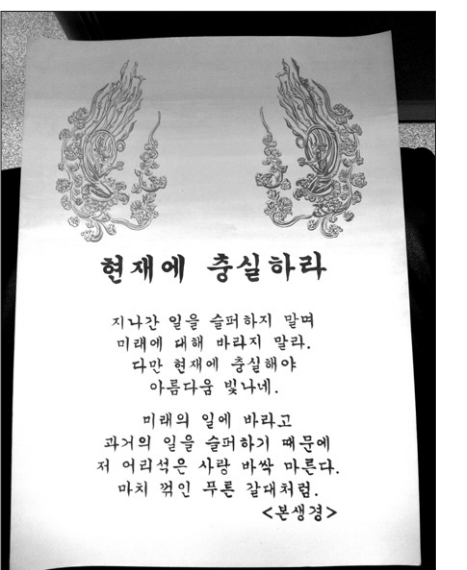 현재에 충실하라
지나간 일을 슬퍼하지 말며
미래에 대해 바라지 말라.
다만 현재에 충실해야
아름다움 빛나네.
미래의 일에 바라고
과거의 일을 슬퍼하기 때문에
저 어리석은 사람 바싹 마른다.
마치 꺾인 푸른 갈대처럼.
<본생경>